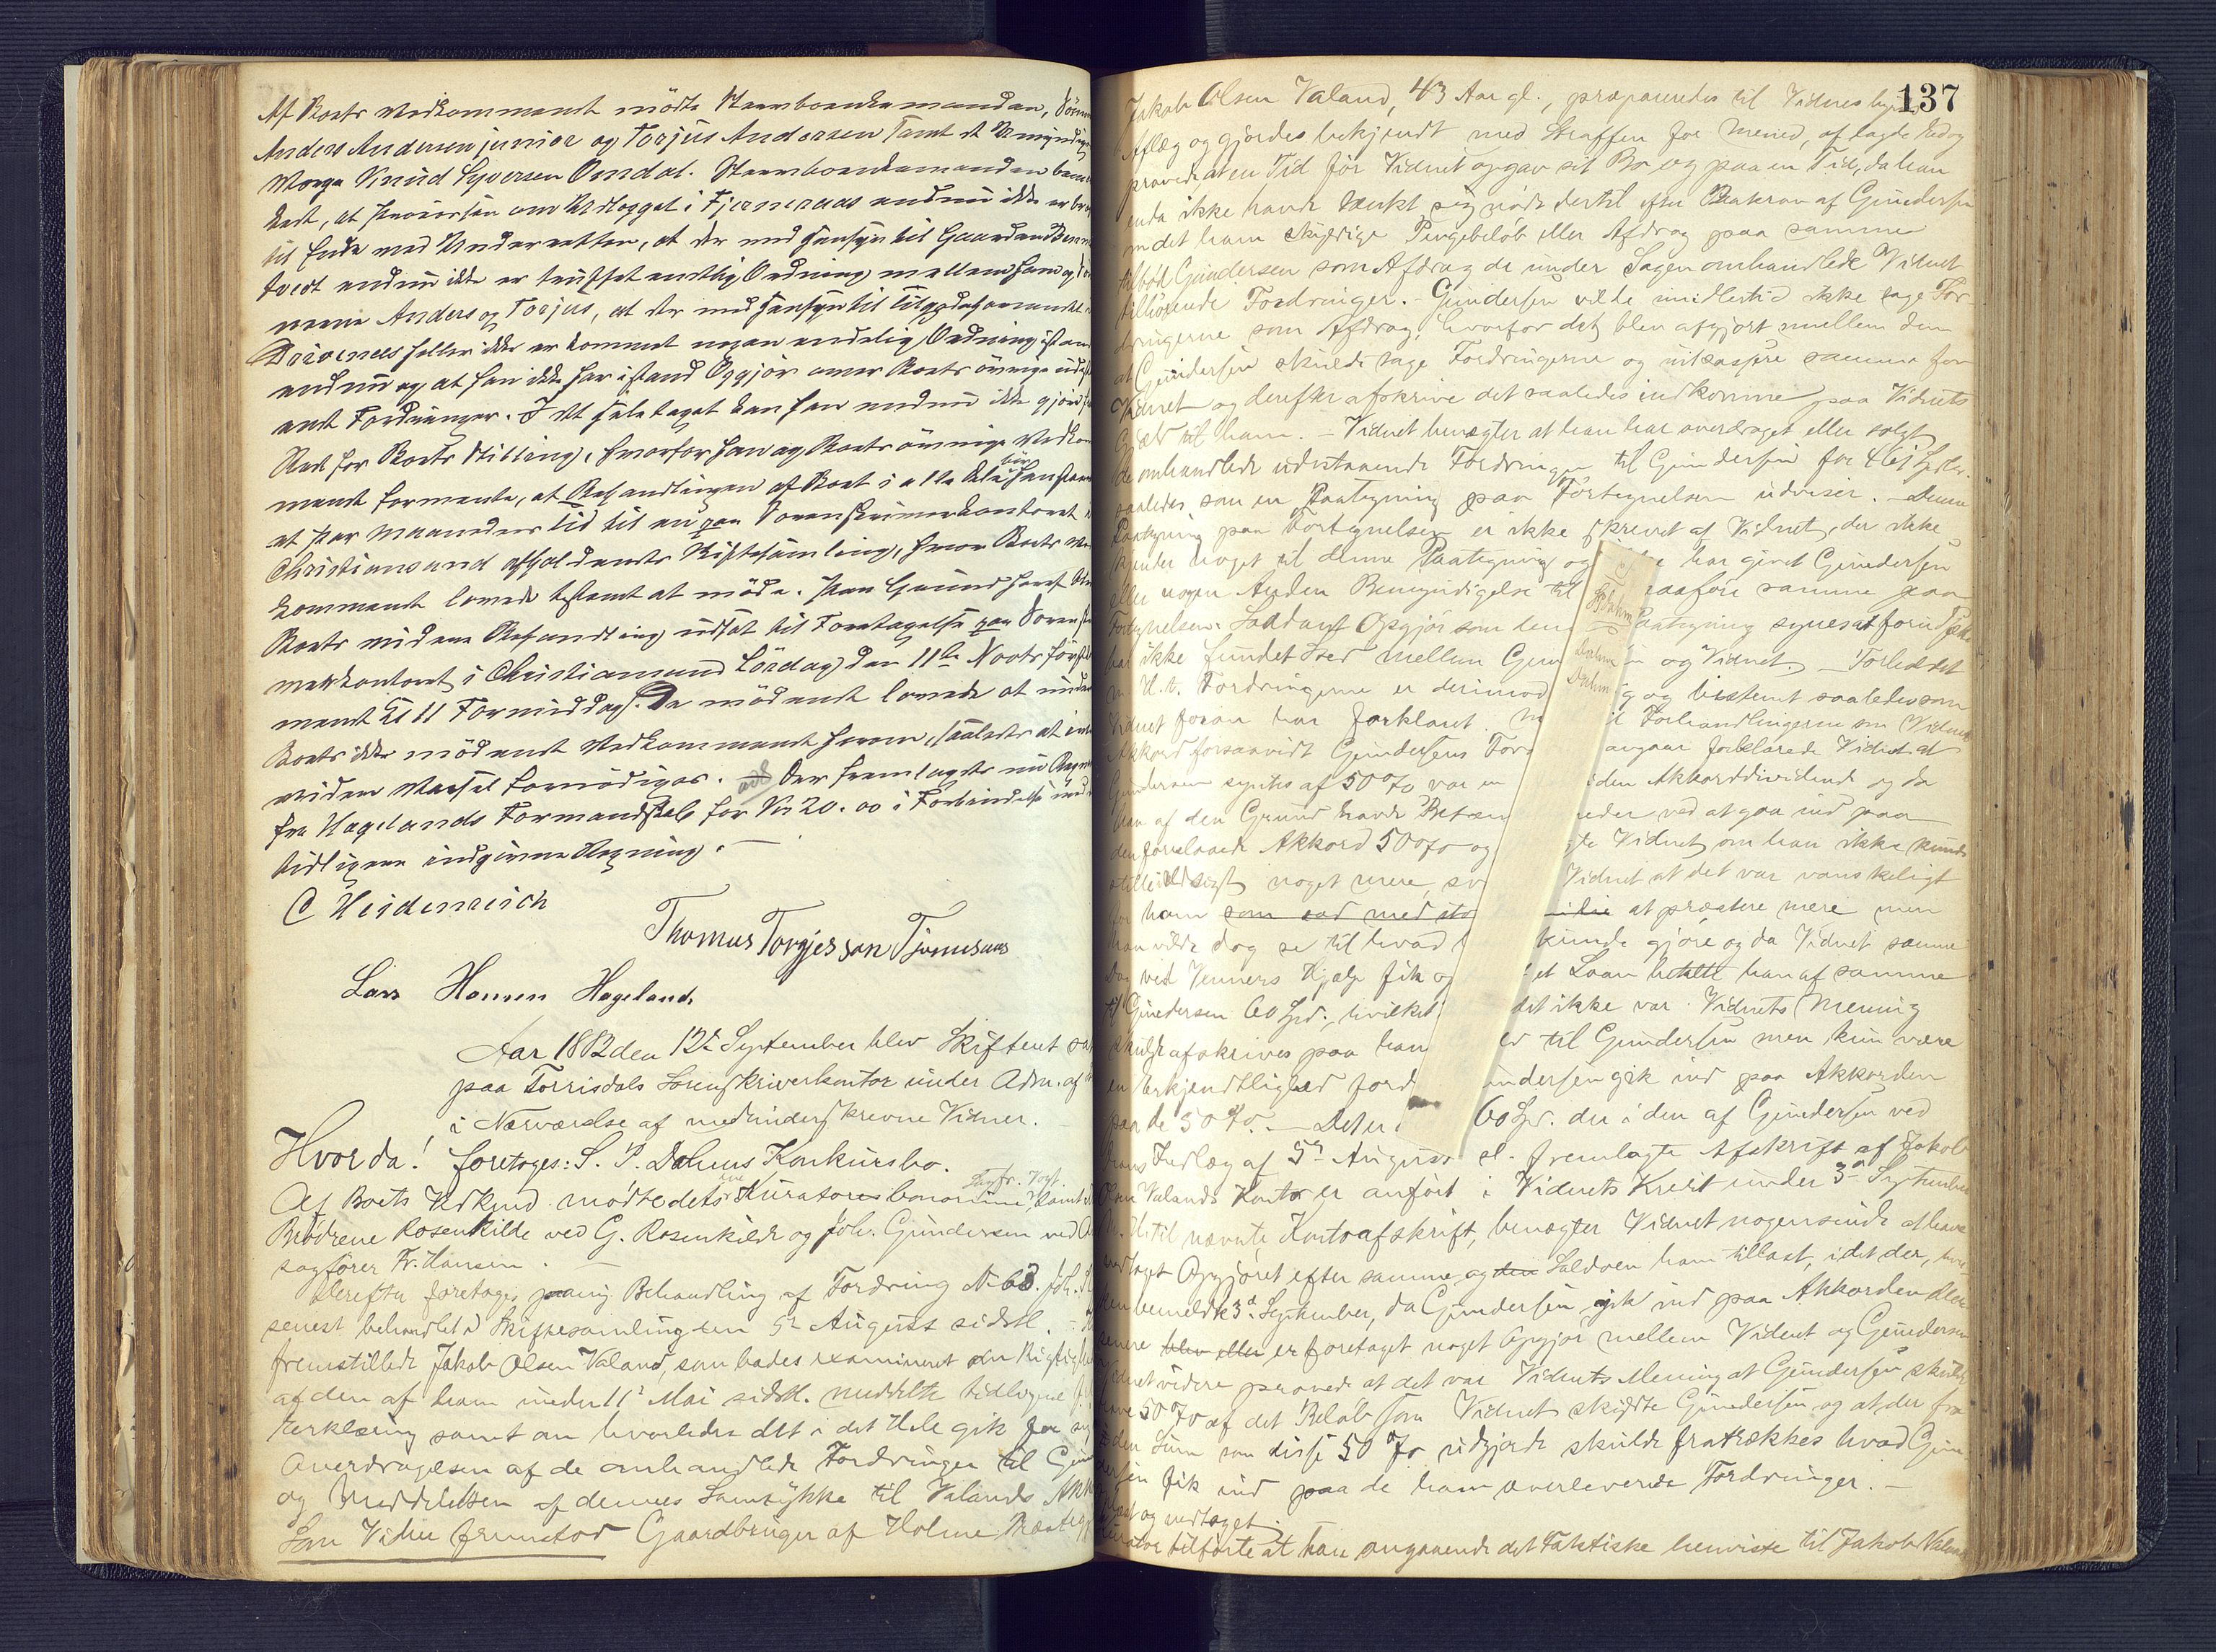 Af Boets Vedkommende mödte Stervboenkemanden, Sönn
Anders Andersen junior og Torjus Andersen samt de Umyndiges
Værge Knud Syversen Omdal. Stervboenkemanden bemær
kede, at Processen om Udlægget i Fjermeraas endnu ikke er bragt
til Ende ved Underretten, at der med Hensyn til Gaarden
tvedt endnu ikke er truffet endelig Ordning mellem ham og
nerne Anders og Torjus, at der med Hensyn til Tilgodehavende
Drivenes heller ikke er kommet nogen endelig Ordning istand
endnu og at han ikke har istand Opgjör over Boets övrige udestaa
ende Fordringer. I det hele taget kan han endnu ikke gjöre
Rede for Boets Stilling, hvorfor han og Boets övrige Vedkom
mende formente, at Behandlingen af Boet i alle Dele bör henstaa
et Par Maaneders Tid til en paa Sorenskriverkontoret i
Christiansand afholdende Skiftesamling, hvor Boets Ved
kommende lovede bestemt at möde. Paa Grund heraf blev
Boets videre Behandling udsat til Foretagelse paa Sorenskri
verkontoret i Christiansand Lördag den 11te Novbr förstkom
mende Kl 11 Formiddag. De mödende lovede at underrette
Boets ikke mödende Vedkommende herom, saaledes at ingen
videre Varsel fornödiges. Der fremlagdes nu Regning
fra Hægelands Formandskab for Kr 20.00 i Forbindelse med
tidligere indgivne Regning. —
C Heidenreich
Thomas Torgjersson Tjomsaas
Lars Hansen Hageland.
Aar 1882 den 12te September blev Skifteret sat
paa Torrisdals Sorenskriverkontor under Adm. af
i Nærværelse af medunderskrevne Vidner.
Hvor da! foretoges: S. P. Dahms Konkursbo.
Af Boets Vedkmd. mødte dets Kurator bonorum Sagfr. Vogt, samt
Brødrene Rosenkilde ved G. Rosenkilde og Joh. Gundersen ved
sagfører Fr. Hansen. —
Derefter foretoges paany Behandling af Fordring No 63. Joh.
senest behandlet i Skiftesamling den 5te August sidstl. —
fremstillede Jakob Olsen Valand, som bades examineret om Rigtigheden
af den af ham under 11te Mai sidstl. meddelte tidligere
Erklæring samt om hvorledes det i det Hele gik for sig
Overdragelsen af de omhandlede Fordringer til Gun
og Meddelelsen af dennes Samtykke til Valands Akk
Som Vidne fremstod Gaardbruger af Holme Præstegj
137
Jakob Olsen Valand, 43 Aar gl., præpareredes til Vidnesbyrds
Aflæg og gjordes bekjendt med Straffen for Mened, aflagde Eed og
provede, at en Tid før Vidnet opgav sit Bo og paa en Tid, da han
enda ikke havde tænkt sig nødt dertil efter Paakrav af Gundersen
om det ham skyldige Pengebeløb eller Afdrag paa samme
tilbød Gundersen som Afdrag de under Sagen omhandlede Vidnet
tilhørende Fordringer. — Gundersen vilde imidlertid ikke tage For
dringerne som Afdrag, hvorfor det blev afgjort mellem dem
at Gundersen skulde tage Fordringerne og inkassere samme for
Vidnet og derefter afskrive det saaledes indkomne paa Vidnets
Gjæld til ham. — Vidnet benægter at han har overdraget eller solgt
de omhandlede udestaaende Fordringer til Gundersen for 461 Spdlr
saaledes som en Paategning paa Fortegnelsen udviser. — Denne
Paategning paa Fortegnelsen er ikke skrevet af Vidnet, der ikke
kjender noget til denne Paategning og har givet Gundersen
eller nogen Anden Bemyndigelse til paaføre samme paa
Fortegnelsen. Saadant Opgjør som den Paategning synes at forudsætte
har ikke fundet Sted mellem Gun og Vidnet. — Forholdet
m. H. t. Fordringerne er derimod og bestemt saaledes som
Vidnet foran har forklaret. Forhandlingerne om Vidnets
Akkord forsaavidt Gundersens For angaar forklarede Vidnet at
Gundersen syntes af 50 % var en liden Akkorddividende og da
han af den Grund havde Betæn ved at gaa ind paa
den foreslaaede Akkord 50 % og Vidnet, om han ikke kunde
noget mere, sv Vidnet at det var vanskeligt
for ham som sad med sto at præstere mere men
han vilde dog se til hvad kunde gjøre og da Vidnet samme
Dag ved Venners Hjælp fik og et Laan betalte han af samme
til Gundersen 60 Spd., hvilket det ikke var Vidnets Mening
skulde afskrives paa han til Gundersen men kun være
en Erkjendtlighed ford undersen gik ind paa Akkorden
paa de 50 %. — Det er 60 Spd. der i den af Gundersen ved
hans Indlæg af 5te August sl. fremlagte Afskrift af Jakob
Olsen Valands Konto er anført i Vidnets Kredit under 3die September
til nævnte Kontoafskrift, benægter Vidnet nogensinde at have
vedtaget Opgjøret efter samme og den Saldoen ham tillast, idet der,
bemeldte 3die September, da Gundersen gik ind paa Akkorden
senere blev eller er foretaget noget Opgjør mellem Vidnet og Gundersen
Vidnet videre provede at det var Vidnets Mening at Gundersen skulde
have 50 % af det Beløb som Vidnet skyldte Gundersen og at der fra
den Sum som disse 50 % udgjorde skulde fratrækkes hvad Gun
dersen fik ind paa de ham overleverede Fordringer. —
og vedtaget.
Kurator tilførte at han angaaende det Faktiske henviste til Jakob Valands